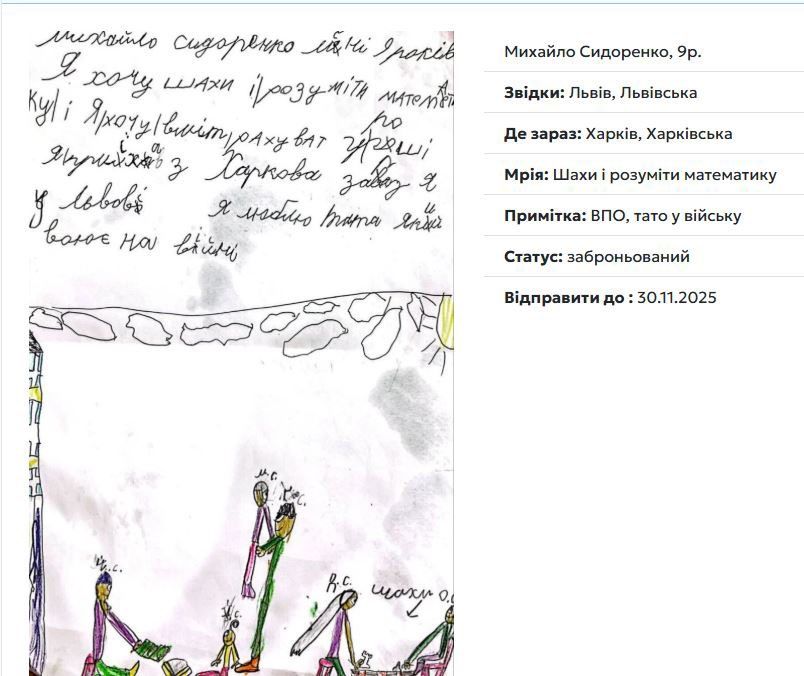 михайло сидоренко мені 9 років
Я хочу шахи і розуміти математи
ку і Я хочу вміти рахуват гроші
Я приїхав з Харкова зараз Я
у Львові Я люблю тата Який
воює на війні
м.с.
с.
с.
с.
с.
шахи о.с
Михайло Сидоренко, 9р.
Звідки: Львів, Львівська
Де зараз: Харків, Харківська
Мрія: Шахи і розуміти математику
Примітка: ВПО, тато у війську
Статус: заброньований
Відправити до : 30.11.2025